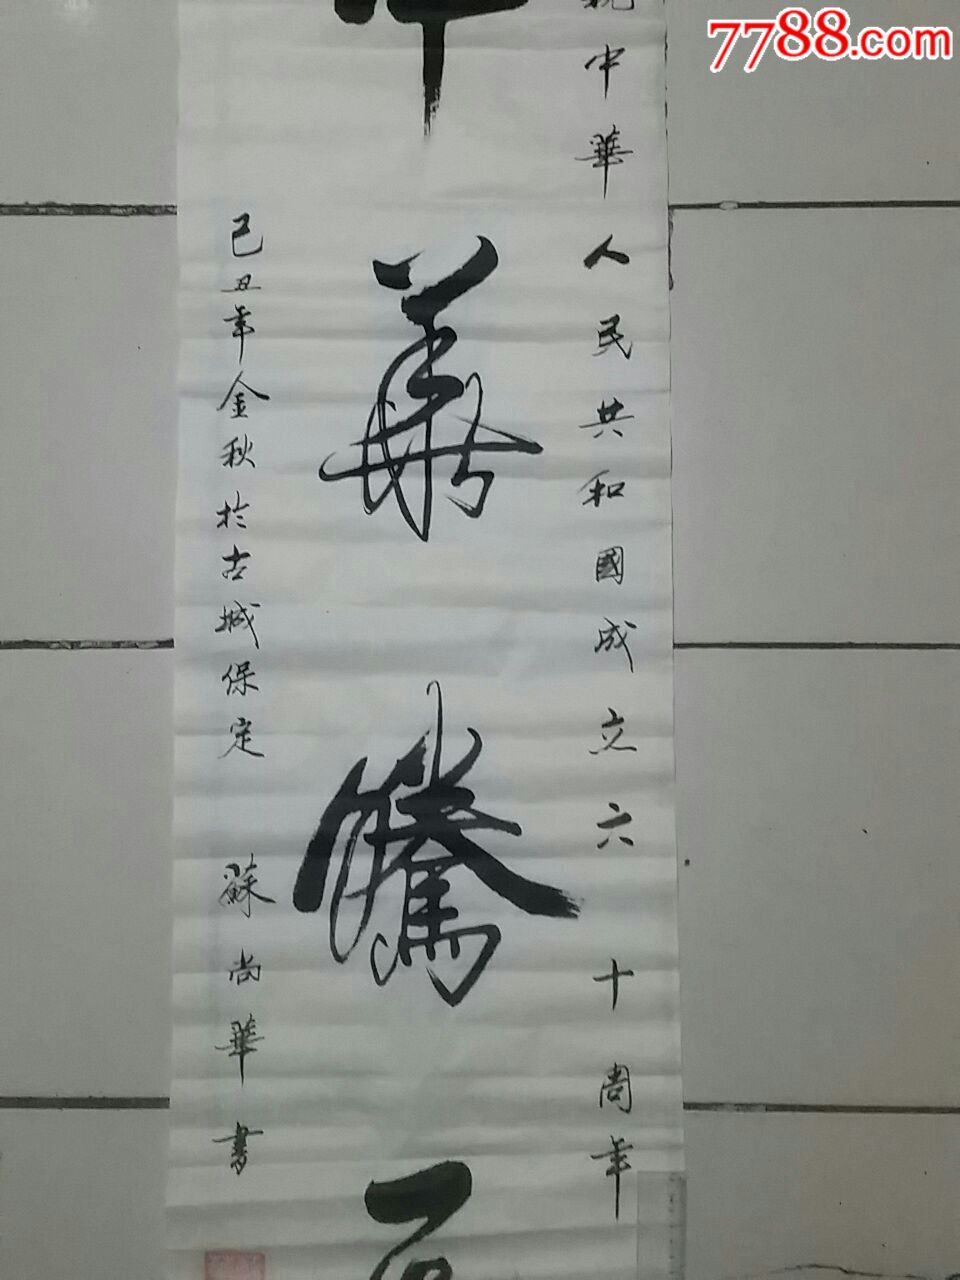 7788.com
中華人民共和國成立六十周年
華騰
己丑年金秋於古城保定 蘇尚華書